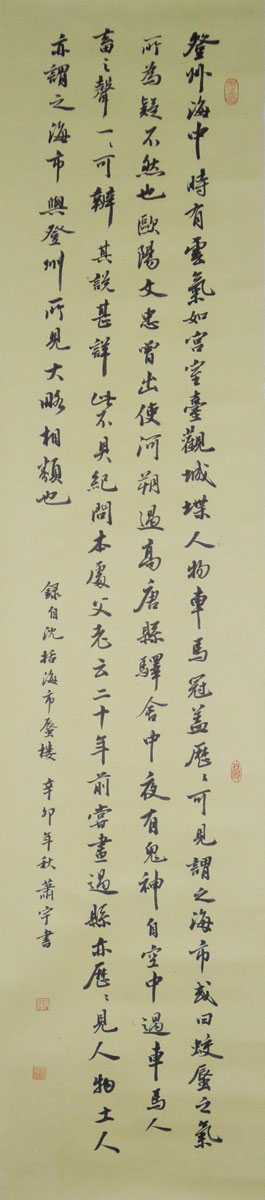 登州海中時有雲氣如宮室臺觀城堞人物車馬冠蓋歷〻可見謂之海市或曰蛟蜃之氣
所為疑不然也歐陽文忠曾出使河朔過高唐縣驛舍中夜有鬼神自空中過車馬人
畜〻聲一〻可辨其說甚詳此不具紀問本處父老云二十年前嘗晝過縣亦歷〻見人物土人
亦謂之海市與登州所見大略相類也
錄自沈括海市蜃樓 辛卯年秋蕭宇書